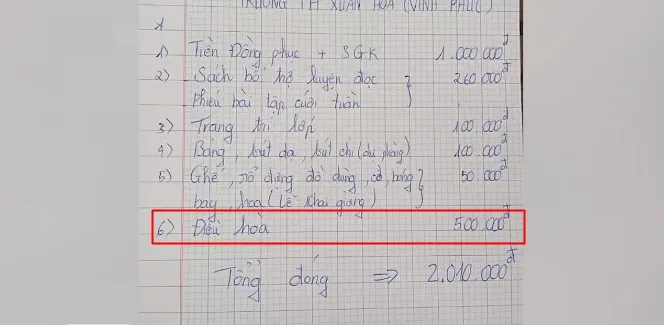 TRƯỜNG TH XUÂN HOÀ (VĨNH PHÚC)
1) Tiền Đồng phục + SGK 1.000.000đ
2) - Sách bổ trợ luyện đọc 260.000đ
- Phiếu bài tập cuối tuần
3) Trang trí lớp 100.000đ
4) Bảng, bút dạ, bút chì (dự phòng) 100.000đ
5) Ghế, rổ đựng đồ dùng, cờ, bóng 50.000đ
bay, hoa (Lễ khai giảng)
6) Điều hòa 500.000đ
Tổng đóng ⇒ 2.010.000đ